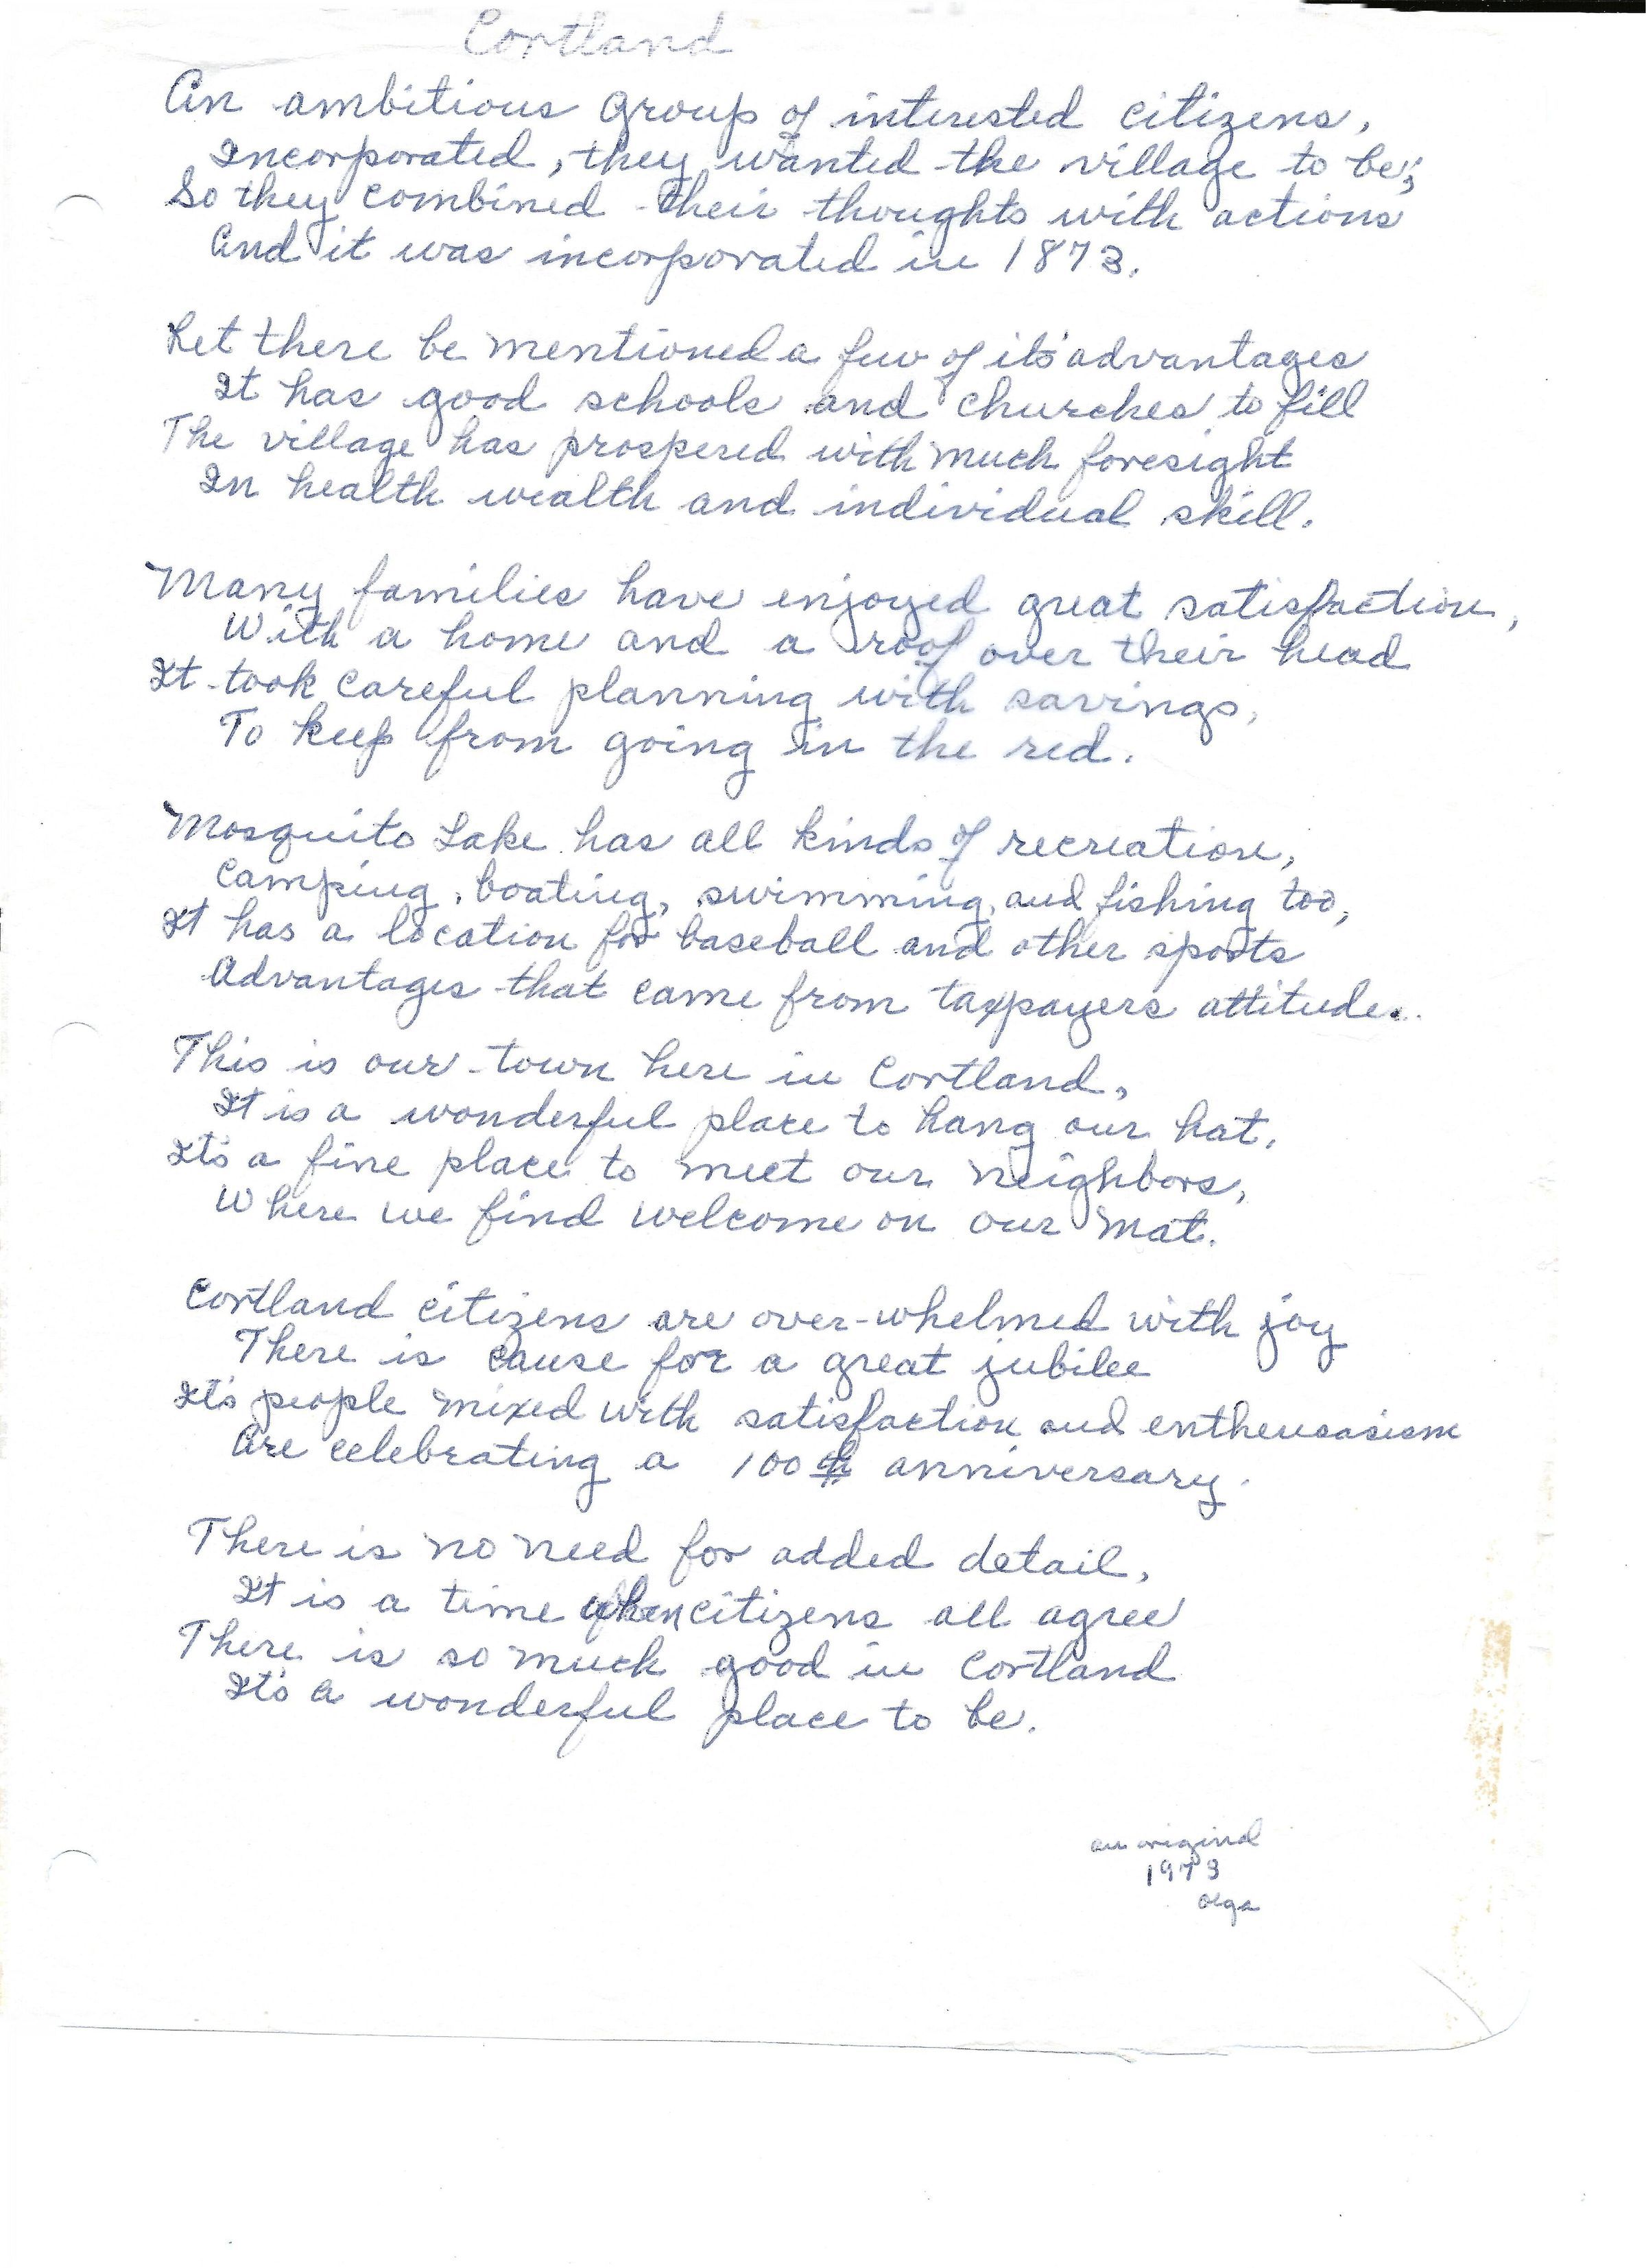 Cortland
An ambitious group of interested citizens,
Incorporated, they wanted the village to be;
So they combined their thoughts with actions
And it was incorporated in 1873.
Let there be mentioned a few of it's advantages
It has good schools and churches to fill
The village has prospered with much foresight
In health wealth and individual skill.
Many families have enjoyed great satisfaction,
With a home and a roof over their head
It took careful planning with savings,
To keep from going in the red.
Mosquito Lake has all kinds of recreation,
Camping, boating, swimming, and fishing too,
It has a location for baseball and other sports
Advantages that came from taxpayers attitude.
This is our town here in Cortland,
It is a wonderful place to hang our hat,
It's a fine place to meet our neighbors,
Where we find welcome on our mat.
Cortland citizens are over-whelmed with joy
There is cause for a great jubilee
It's people mixed with satisfaction and entheusasism
Are celebrating a 100th anniversary.
There is no need for added detail,
It is a time when citizens all agree
There is so much good in Cortland
It's a wonderful place to be.
an original
1973
Olga